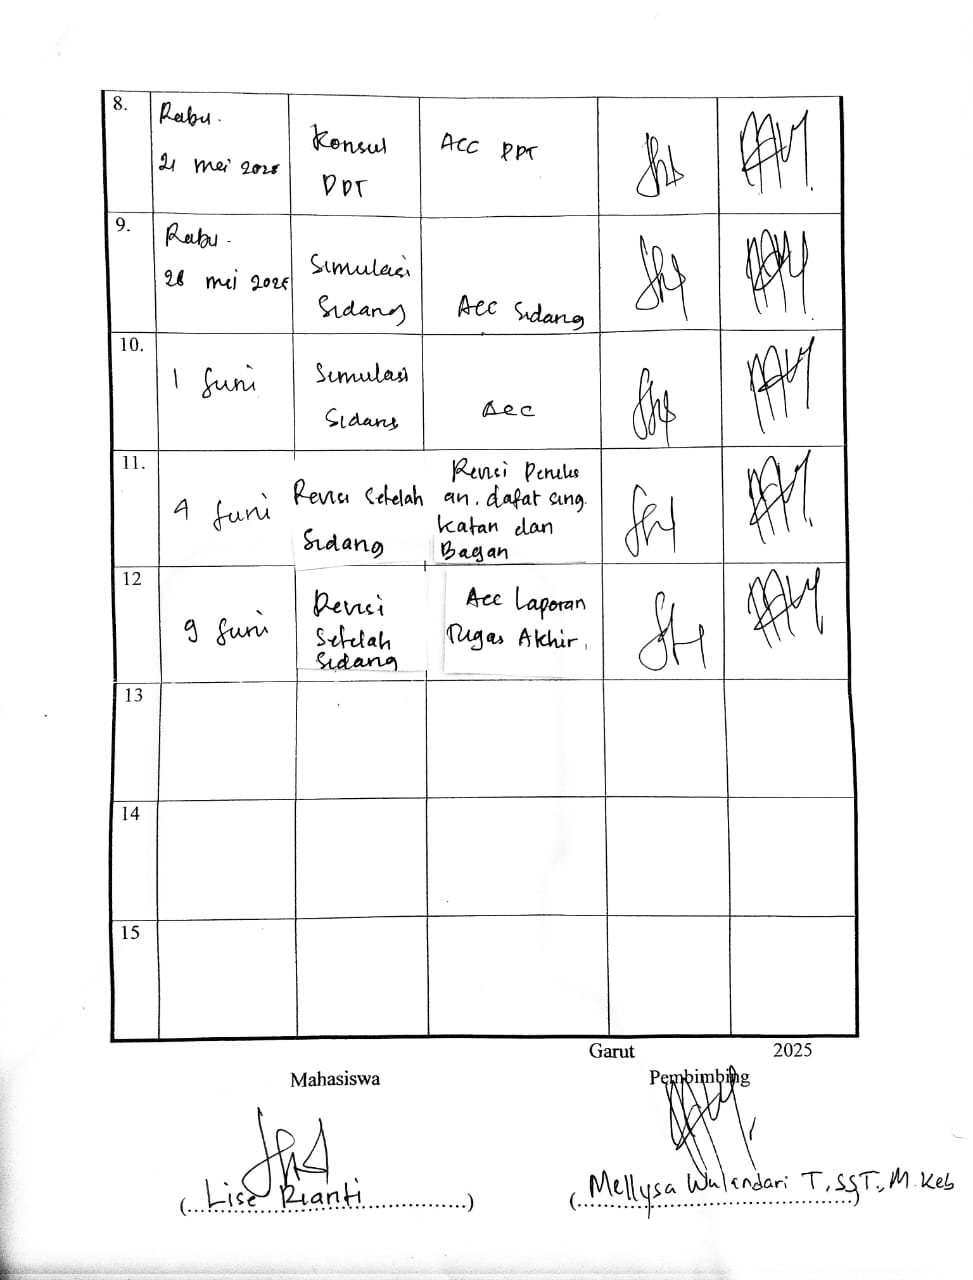 8.
Rabu.
21 mei 2025
Konsul
PPT
ACC PPT
9.
Rabu.
28 mei 2025
Simulasi
Sidang
Acc Sidang
10.
1 Juni
Simulasi
Sidang
Acc
11.
4 Juni
Revisi Setelah
Sidang
Revisi Penulis
an. dafat sing.
katan dan
Bagan
12
9 Juni
Revisi
Setelah
Sidang
Acc Laporan
Tugas Akhir.
13
14
15
Garut 2025
Mahasiswa Pembimbing
(Lise Rianti) (Mellysa Wulandari T, SST., M.Keb)